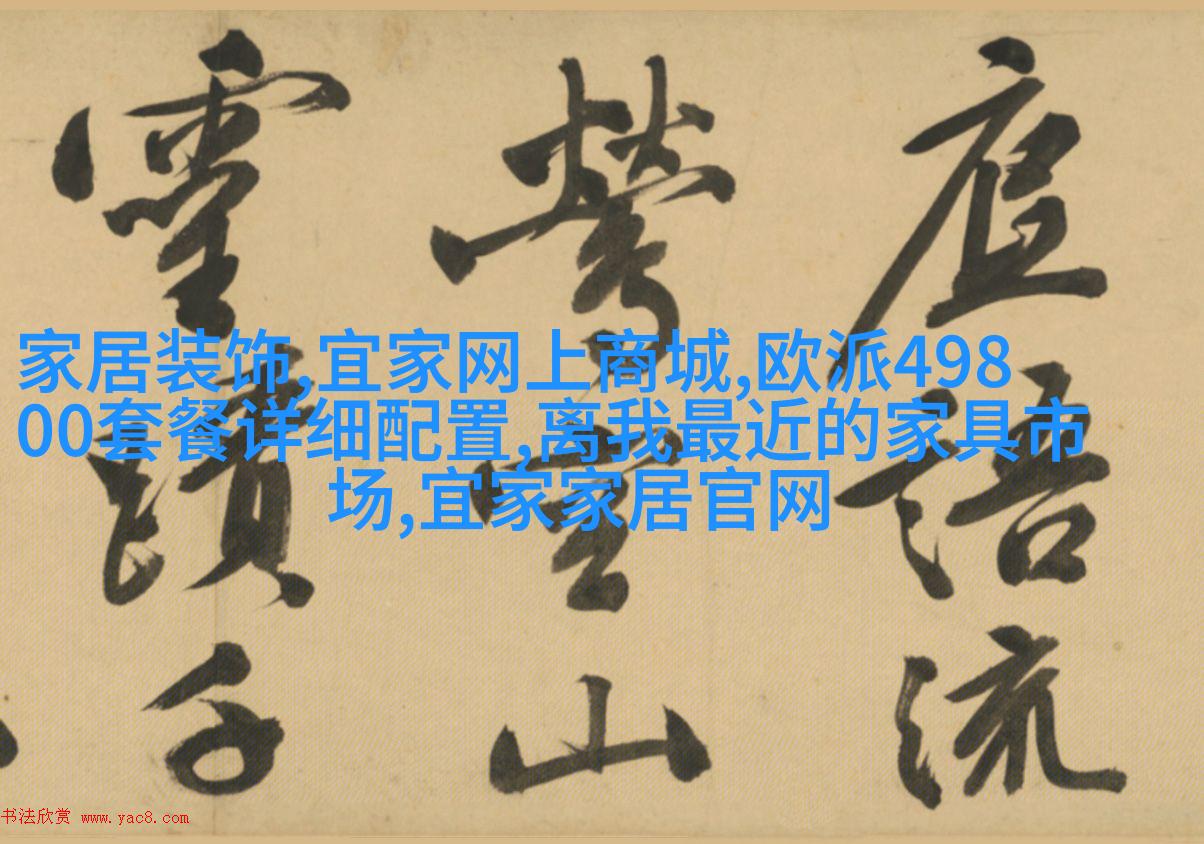 家居装饰,宜家网上商城,欧派498
00套餐详细配置,离我最近的家具市
场,宜家家居官网
語流
鶯空山
靈蹟千
书法欣赏 www.yac8.com